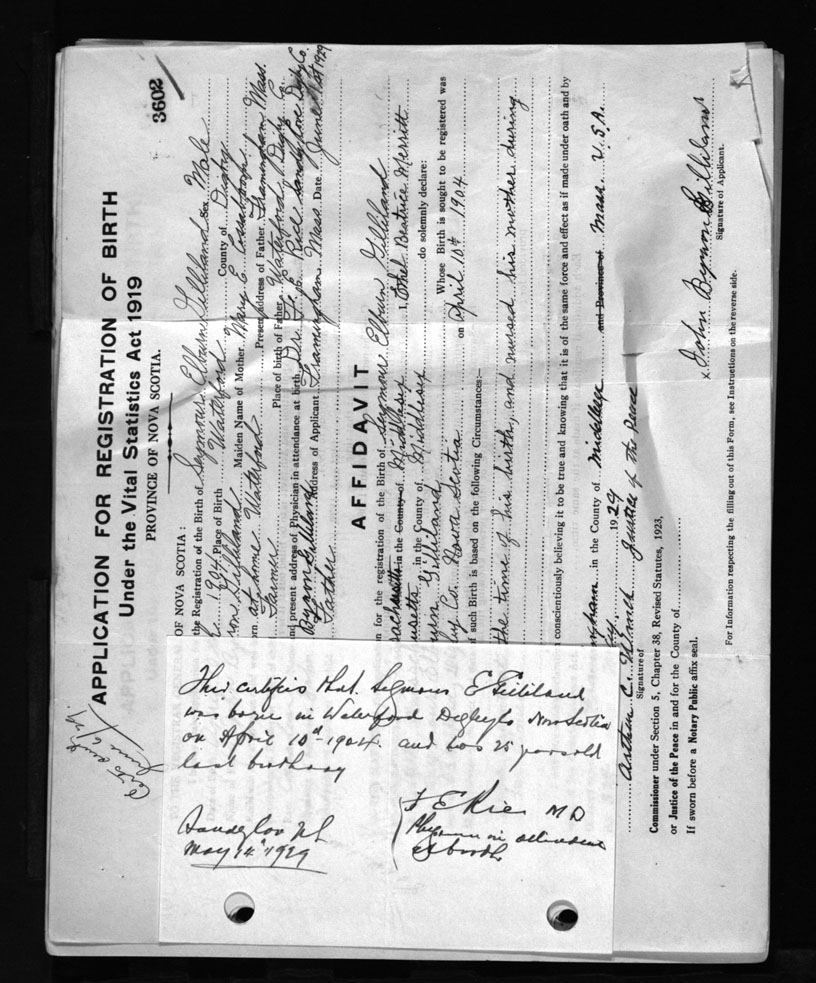 3602
APPLICATION FOR REGISTRATION OF BIRTH
Under the Vital Statistics Act 1919
PROVINCE OF NOVA SCOTIA.
OF NOVA SCOTIA:
the Registration of the Birth of Seymour Elburn Gilliland Sex Male
1904 Place of Birth Waterford County of Digby
Gilliland Maiden Name of Mother Mary E.
at home Waterford Present address of Father Framingham Mass.
Farmer Place of birth of Father Waterford Digby Co.
nd present address of Physician in attendance at birth Dr. F. E. Rice Sandy Cove Digby Co.
Byron Gilliland Address of Applicant Framingham Mass. Date June 1st 1929
Father
AFFIDAVIT
n for the registration of the Birth of Seymour Elburn Gilliland
in the County of Middlesex I, Ethel Beatrice Merritt
usetts in the County of Middlesex do solemnly declare:
Gilliland Whose Birth is sought to be registered was
by Co. Nova Scotia on April 10th 1904
f such Birth is based on the following Circumstances:—
the time of his birth, and nursed his mother during
conscientiously believing it to be true and knowing that it is of the same force and effect as if made under oath and by
ingham in the County of Middlesex and Province of Mass. U.S.A.
1929
Arthur C. Justice of the Peace
Signature of
x John Byron Gilliland
Signature of Applicant.
Commissioner under Section 5, Chapter 38, Revised Statutes, 1923,
or Justice of the Peace in and for the County of
If sworn before a Notary Public affix seal.
For Information respecting the filling out of this Form, see Instructions on the reverse side.
This certifies that Seymour E Gilliland
was born in Waterford Digby Co Nova Scotia
on April 10th 1904 and was 25 years old
last birthday
F E Rice MD
Physician in attendance
at birth
Sandy Cove NS
May 14th 1929